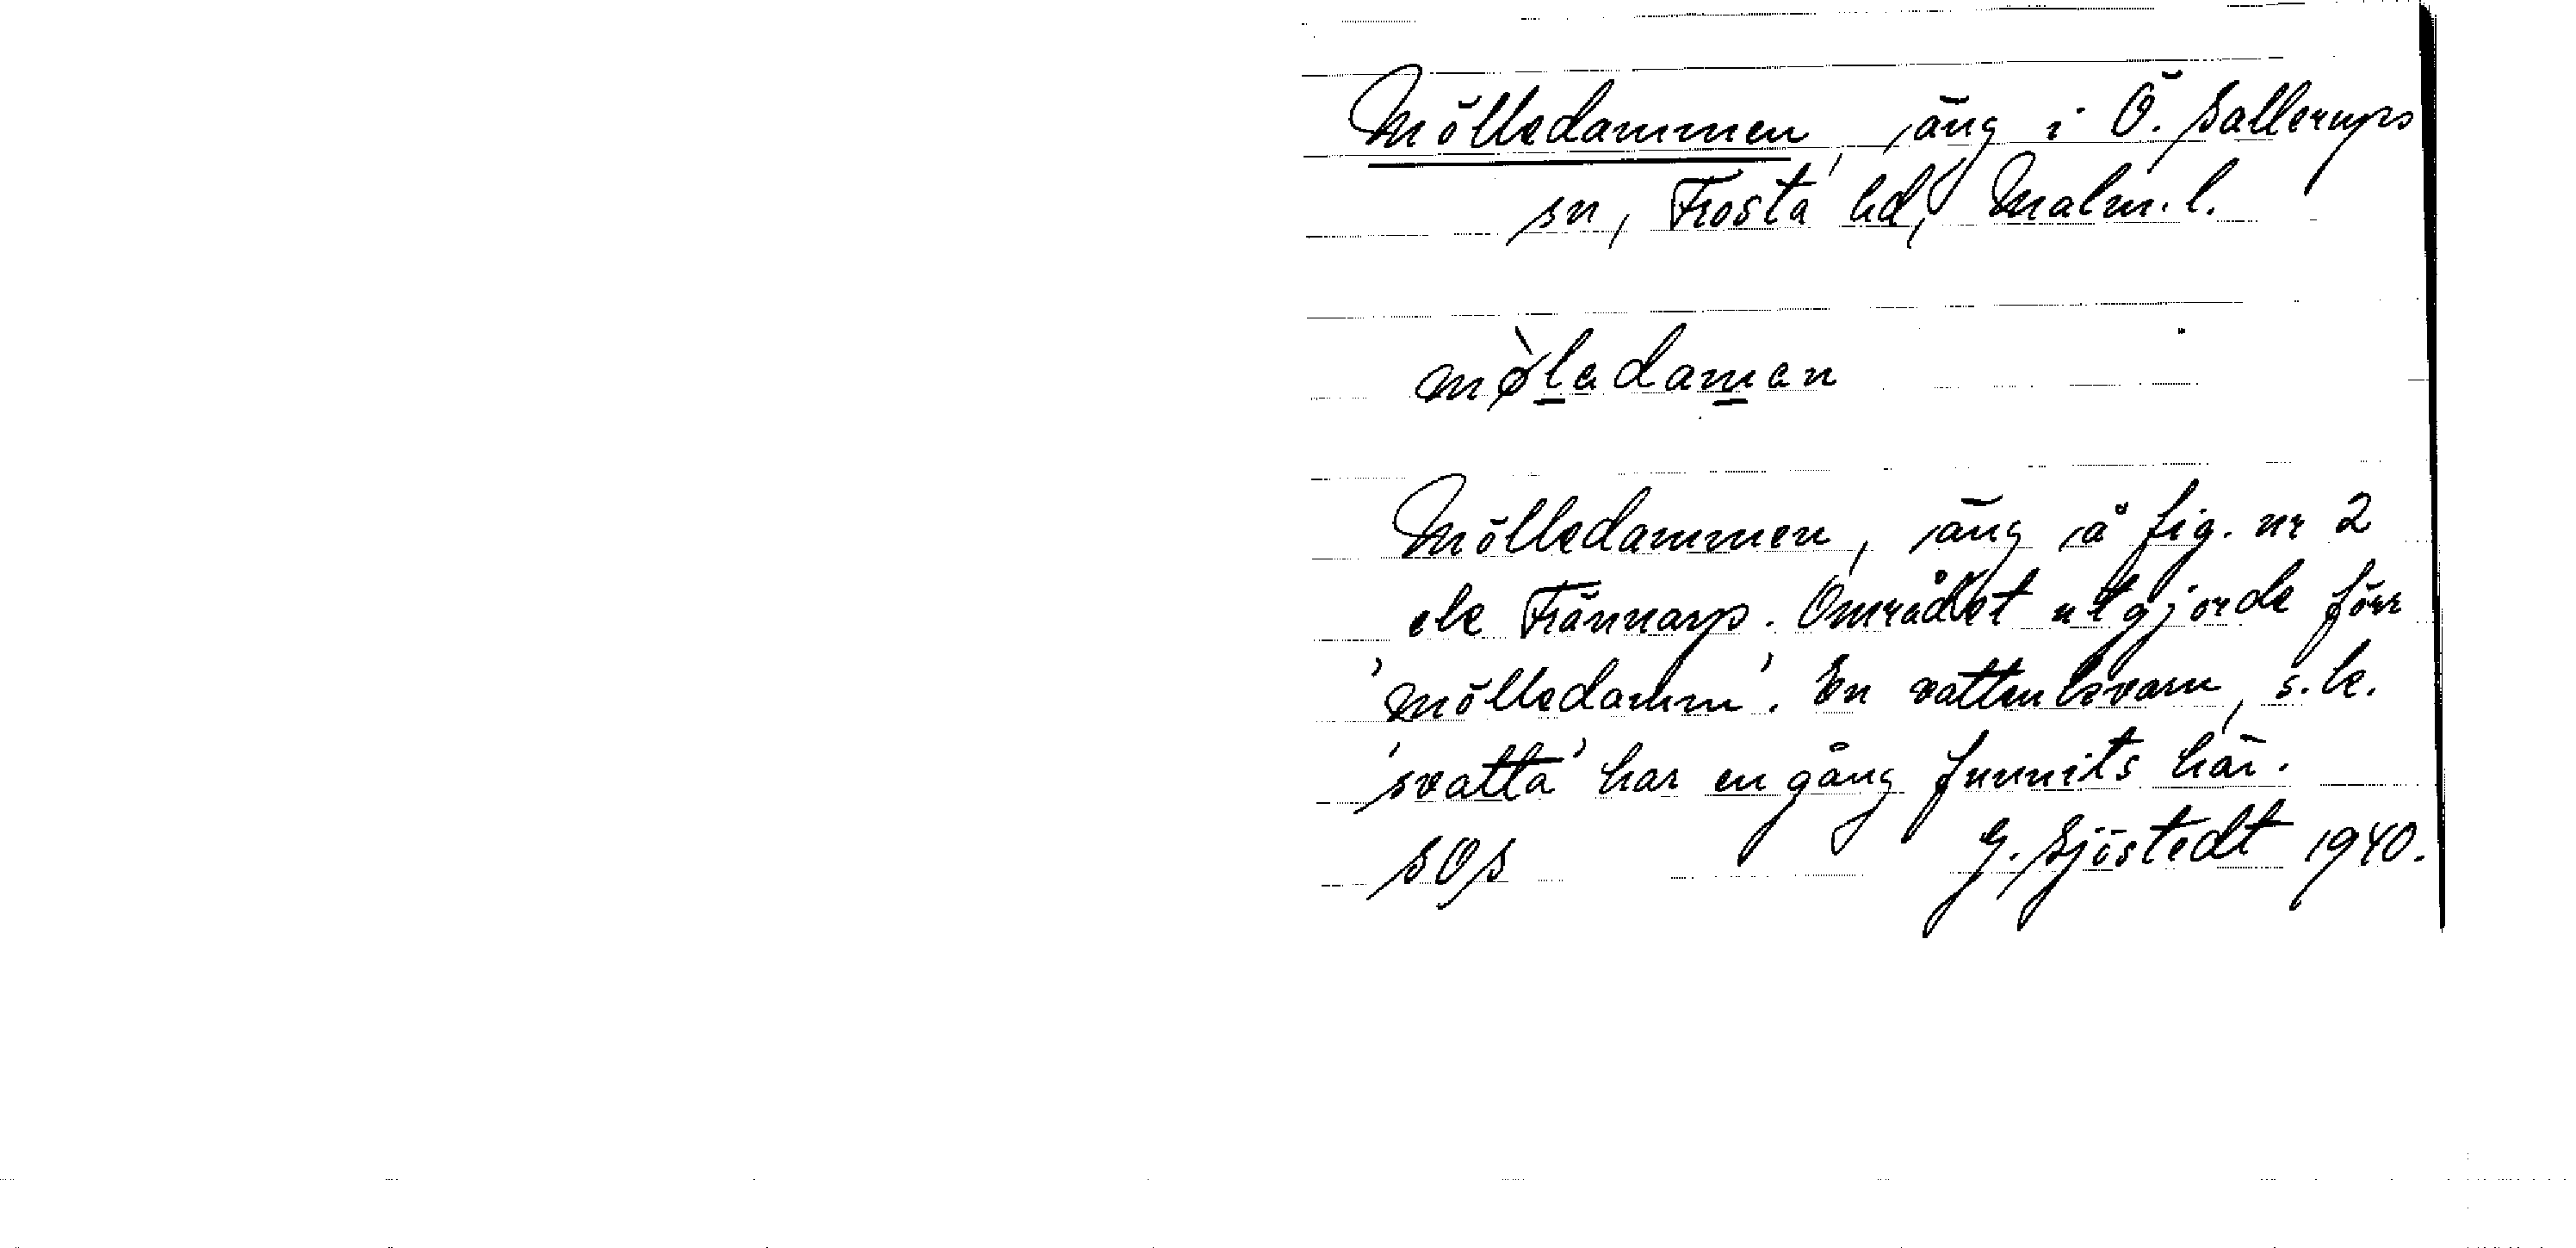 Mölledammen, äng i Ö. Sallerups
sn, Frosta hd, Malm. l.
mø̀ledamen
Mölledammen, äng å fig. nr 2
ele Frännarp. Området utgjorde förr
'mölledamm'. En vattenkvarn, s.k.
'svatta' har en gång funnits här.
SOS G. Sjöstedt 1940.